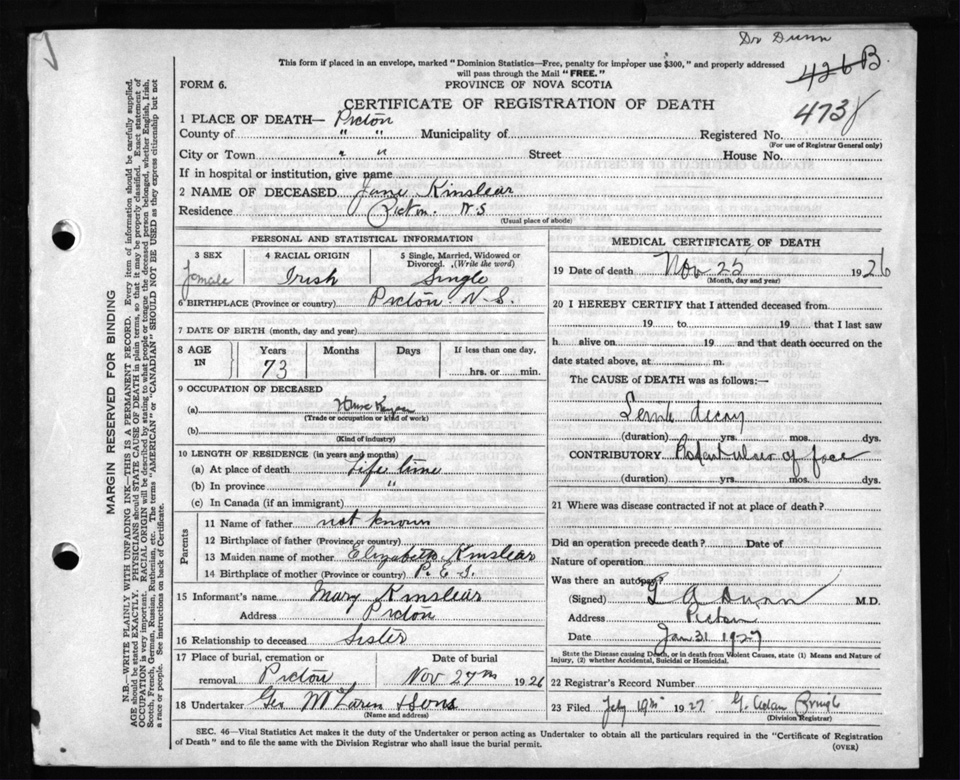 Dr Dunn
This form if placed in an envelope, marked "Dominion Statistics—Free, penalty for improper use $300," and properly addressed
will pass through the Mail "FREE."
426B
FORM 6.
PROVINCE OF NOVA SCOTIA
CERTIFICATE OF REGISTRATION OF DEATH
473
1 PLACE OF DEATH— Pictou
County of " " Municipality of Registered No.
(For use of Registrar General only)
City or Town " " Street House No.
If in hospital or institution, give name
2 NAME OF DECEASED Jane Kinslear
Residence Pictou. N S
(Usual place of abode)
PERSONAL AND STATISTICAL INFORMATION
3 SEX 4 RACIAL ORIGIN 5 Single, Married, Widowed or
Divorced. (Write the word)
female Irish Single
6 BIRTHPLACE (Province or country) Pictou N.S.
7 DATE OF BIRTH (month, day and year)
8 AGE IN Years Months Days If less than one day,
73 hrs. or min.
9 OCCUPATION OF DECEASED
(a) House Keeper
(Trade or occupation or kind of work)
(b)
(Kind of industry)
10 LENGTH OF RESIDENCE (in years and months)
(a) At place of death Life time
(b) In province "
(c) In Canada (if an immigrant)
Parents
11 Name of father not known
12 Birthplace of father (Province or country)
13 Maiden name of mother Elizabeth Kinslear
14 Birthplace of mother (Province or country) P.E.I.
15 Informant's name Mary Kinslear
Address Pictou
16 Relationship to deceased Sister
17 Place of burial, cremation or Date of burial
removal Pictou Nov 27th 1926
18 Undertaker Geo McLaren & Sons
(Name and address)
MEDICAL CERTIFICATE OF DEATH
19 Date of death Nov 25 1926
(Month, day and year)
20 I HEREBY CERTIFY that I attended deceased from
19 to 19 that I last saw
h alive on 19 and that death occurred on the
date stated above, at m.
The CAUSE of DEATH was as follows:—
Senile decay
(duration) yrs. mos. dys.
CONTRIBUTORY Rodent ulcer of face
(duration) yrs. mos. dys.
21 Where was disease contracted if not at place of death?
Did an operation precede death? Date of
Nature of operation
Was there an autopsy?
(Signed) Dunn M.D.
Address Pictou
Date Jan 31 1927
State the Disease causing Death, or in death from Violent Causes, state (1) Means and Nature of
Injury, (2) whether Accidental, Suicidal or Homicidal.
22 Registrar's Record Number
23 Filed 19th 1927
(Division Registrar)
SEC. 46—Vital Statistics Act makes it the duty of the Undertaker or person acting as Undertaker to obtain all the particulars required in the "Certificate of Registration
of Death" and to file the same with the Division Registrar who shall issue the burial permit.
(OVER)
MARGIN RESERVED FOR BINDING
N.B.—WRITE PLAINLY WITH UNFADING INK—THIS IS A PERMANENT RECORD. Every item of information should be carefully supplied.
AGE should be stated EXACTLY. PHYSICIANS should STATE CAUSE OF DEATH in plain terms, so that it may be properly classified. Exact statement of
OCCUPATION is very important. RACIAL ORIGIN will be described by stating to what people or tongue the deceased person belonged, whether English, Irish,
Scotch, French, German, Russian, Ruthenian, etc. The terms "AMERICAN" or "CANADIAN" SHOULD NOT BE USED as they express citizenship but not
a race or people. See instructions on back of Certificate.